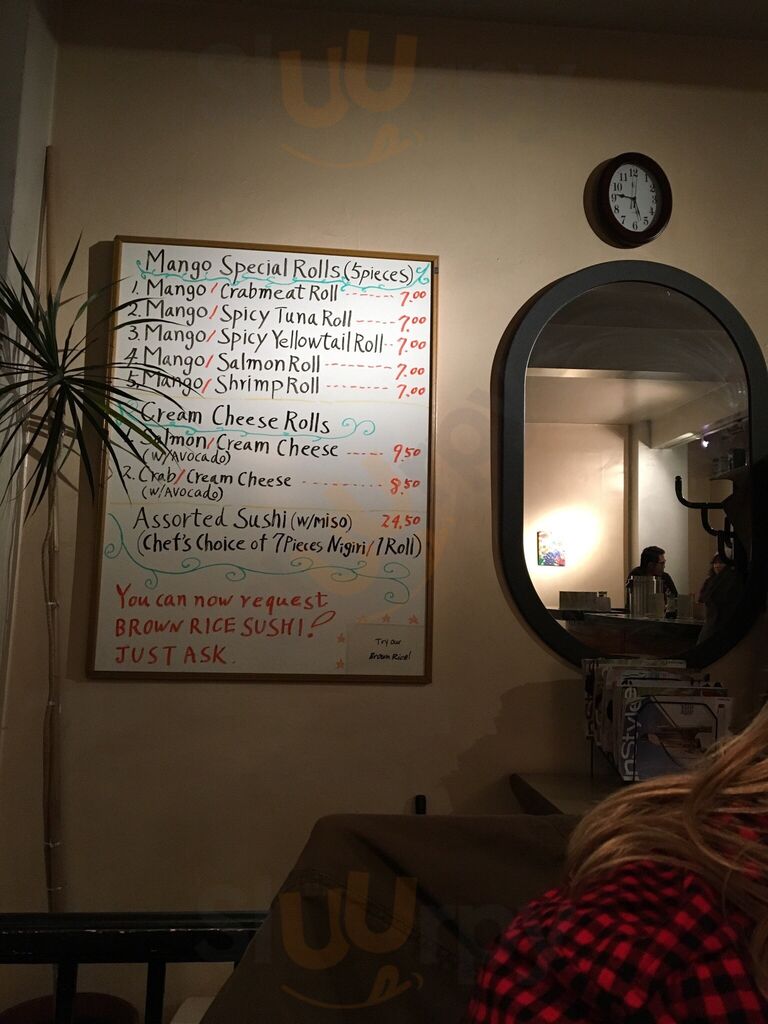 Mango Special Rolls (5pieces)
1. Mango/Crabmeat Roll ------ 7.00
2. Mango/Spicy Tuna Roll ---- 7.00
3. Mango/Spicy Yellowtail Roll-- 7.00
4. Mango/Salmon Roll ------- 7.00
5. Mango/Shrimp Roll ------- 7.00
Cream Cheese Rolls
1. Salmon/Cream Cheese ---- 9.50
(w/Avocado)
2. Crab/Cream Cheese -------- 8.50
(w/Avocado)
Assorted Sushi (w/miso) 24.50
(Chef's Choice of 7 Pieces Nigiri/1 Roll)
You can now request
BROWN RICE SUSHI!
JUST ASK.
Try our
Brown Rice!
InStyle
slUUrpy
slUUrpy